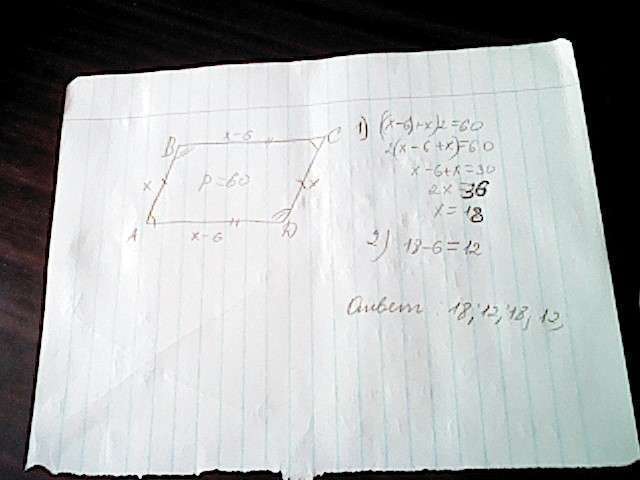 x-6
B
C
x
P=60
x
A
x-6
D
1) (x-6)+x)2=60
2(x-6+x)=60
x-6+x=30
2x=36
x=18
2) 18-6=12
Ответ: 18; 12; 18; 12,